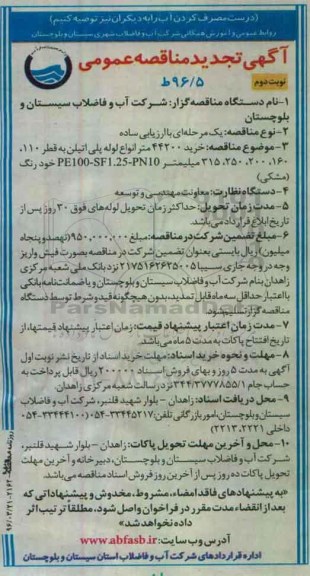 (درست مصرف کردن آب را به دیگران نیز توصیه کنیم)
روابط عمومی و آموزش همگانی شرکت آب و فاضلاب شهری سیستان و بلوچستان
آگهی تجدید مناقصه عمومی
نوبت دوم
۹۶/۵ط
۱-نام دستگاه مناقصه گزار: شرکت آب و فاضلاب سیستان و
بلوچستان
۲-نوع مناقصه: یک مرحله ای با ارزیابی ساده
۳-موضوع مناقصه: خرید ۴۴۲۰۰ متر انواع لوله پلی اتیلن به قطر ۱۱۰،
۱۶۰، ۲۰۰، ۲۵۰، ۳۱۵ میلیمتر PE100-SF1.25-PN10 خود رنگ
(مشکی)
۴-دستگاه نظارت: معاونت مهندسی و توسعه
۵-مدت زمان تحویل: حداکثر زمان تحویل لوله های فوق ۳۰ روز پس از
تاریخ ابلاغ قرارداد می باشد.
۶-مبلغ تضمین شرکت در مناقصه: مبلغ ۹۵۰,۰۰۰,۰۰۰ (نهصد و پنجاه
میلیون) ریال بایستی بعنوان تضمین شرکت در مناقصه بصورت فیش واریز
وجه در وجه جاری سیبا ۲۱۷۵۱۶۲۶۲۵۰۰۵ نزد بانک ملی شعبه مرکزی
زاهدان بنام شرکت آب و فاضلاب سیستان و بلوچستان و یا ضمانت نامه بانکی
با اعتبار حداقل سه ماه قابل تمدید، بدون هیچگونه قید و شرط توسط دستگاه
مناقصه گزار تسلیم شود.
۷-مدت زمان اعتبار پیشنهاد قیمت: زمان اعتبار پیشنهاد قیمتها، از
تاریخ افتتاح پاکات به مدت ۵ ماه می باشد.
۸-مهلت و نحوه خرید اسناد: مهلت خرید اسناد از تاریخ نشر نوبت اول
آگهی به مدت ۵ روز و بهای فروش اسناد ۲۰۰۰۰۰ ریال قابل پرداخت به
حساب جام ۳۴۴/۳۷۷۷۸۵۵/۱ نزد رسالت شعبه مرکزی زاهدان.
۹-محل دریافت اسناد: زاهدان - بلوار شهید قلنبر، شرکت آب و فاضلاب
سیستان و بلوچستان، امور بازرگانی تلفن: ۳۳۴۴۵۲۱۷-۰۵۴ (۳۳۴۴۴۱۰۰-۰۵۴
داخلی ۲۲۲۱، ۲۲۱۳)
۱۰-محل و آخرین مهلت تحویل پاکات: زاهدان - بلوار شهید قلنبر،
شرکت آب و فاضلاب سیستان و بلوچستان، دبیرخانه و آخرین مهلت
تحویل پاکات ده روز پس از آخرین روز فروش اسناد مناقصه می باشد.
«به پیشنهادهای فاقد امضاء، مشروط، مخدوش و پیشنهاداتی که
بعد از انقضاء مدت مقرر در فراخوان واصل شود، مطلقا ترتیب اثر
داده نخواهد شد»
آدرس وب سایت: www.abfasb.ir
اداره قراردادهای شرکت آب و فاضلاب استان سیستان و بلوچستان
ParsNamadData